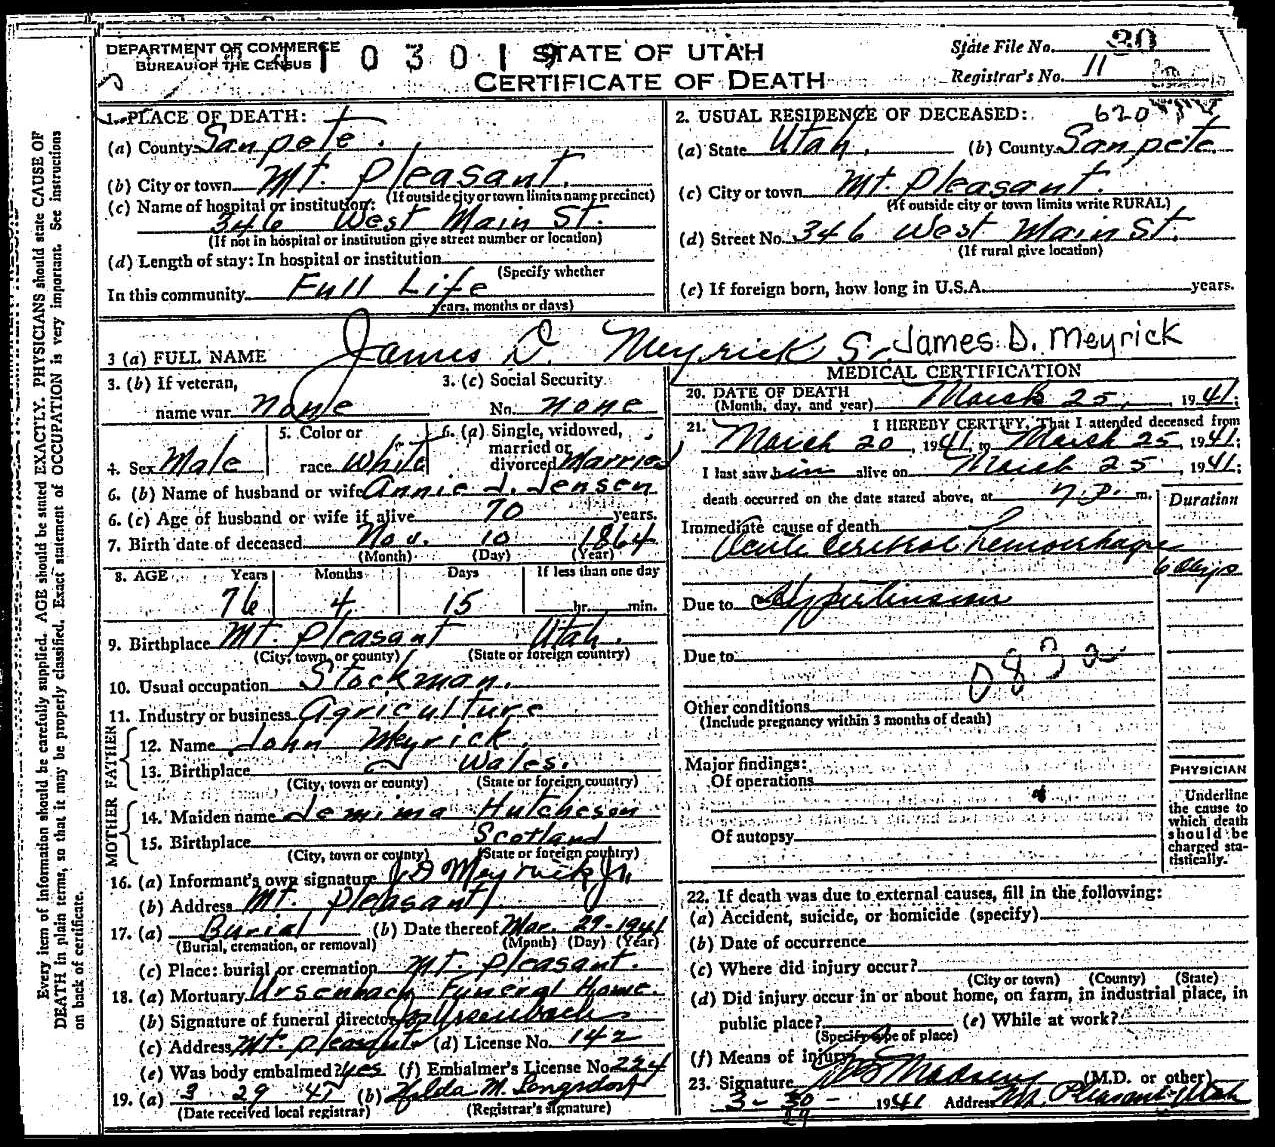 DEPARTMENT OF COMMERCE
BUREAU OF THE CENSUS
1 0 3 0 1 9
STATE OF UTAH
CERTIFICATE OF DEATH
State File No. 20
Registrar's No. 11
1. PLACE OF DEATH:
(a) County Sanpete.
(b) City or town Mt. Pleasant.
(If outside city or town limits name precinct)
(c) Name of hospital or institution:
346 West Main St.
(If not in hospital or institution give street number or location)
(d) Length of stay: In hospital or institution
(Specify whether
In this community Full Life
years, months or days)
2. USUAL RESIDENCE OF DECEASED: 620
(a) State Utah. (b) County Sanpete.
(c) City or town Mt. Pleasant.
(If outside city or town limits write RURAL)
(d) Street No. 346 West Main St.
(If rural give location)
(e) If foreign born, how long in U.S.A. years.
3 (a) FULL NAME James D. Meyrick Sr. James D. Meyrick
3. (b) If veteran,
name war none
3. (c) Social Security
No. none
4. Sex Male
5. Color or
race White
6. (a) Single, widowed,
married or
divorced Married
6. (b) Name of husband or wife Annie J. Jensen
6. (c) Age of husband or wife if alive 70 years.
7. Birth date of deceased Nov. 10 1864
(Month) (Day) (Year)
8. AGE Years Months Days If less than one day
76 4 15 hr. min.
9. Birthplace Mt. Pleasant Utah.
(City, town, or county) (State or foreign country)
10. Usual occupation Stockman.
11. Industry or business Agriculture
FATHER
12. Name John Meyrick.
13. Birthplace Wales.
(City, town or county) (State or foreign country)
MOTHER
14. Maiden name Jemima Hutcheson
15. Birthplace Scotland
(City, town or county) (State or foreign country)
16. (a) Informant's own signature J D Meyrick Jr.
(b) Address Mt. Pleasant
17. (a) Burial (b) Date thereof Mar. 29-1941
(Burial, cremation, or removal) (Month) (Day) (Year)
(c) Place: burial or cremation Mt. Pleasant.
18. (a) Mortuary Ursenbach Funeral Home.
(b) Signature of funeral director Ursenbach
(c) Address Mt. Pleasant (d) License No. 142
(e) Was body embalmed? yes (f) Embalmer's License No. 224
19. (a) 3 29 41 (b) Hilda M. Longsdorf
(Date received local registrar) (Registrar's signature)
MEDICAL CERTIFICATION
20. DATE OF DEATH
(Month, day, and year) March 25, 1941;
21. I HEREBY CERTIFY, That I attended deceased from
March 20, 1941, to March 25, 1941;
I last saw him alive on March 25, 1941;
death occurred on the date stated above, at 7 P. m.
Duration
Immediate cause of death
Acute Cerebral Hemorrhage
6 days
Due to Hypertension
Due to
083 a
Other conditions
(Include pregnancy within 3 months of death)
Major findings:
Of operations
Of autopsy
PHYSICIAN
Underline
the cause to
which death
should be
charged sta-
tistically.
22. If death was due to external causes, fill in the following:
(a) Accident, suicide, or homicide (specify)
(b) Date of occurrence
(c) Where did injury occur?
(City or town) (County) (State)
(d) Did injury occur in or about home, on farm, in industrial place, in
public place? (e) While at work?
(Specify type of place)
(f) Means of injury
23. Signature Madsen (M.D. or other)
3-30-1941 Address Mt. Pleasant Utah
29
Every item of information should be carefully supplied. AGE should be stated EXACTLY. PHYSICIANS should state CAUSE OF
DEATH in plain terms, so that it may be properly classified. Exact statement of OCCUPATION is very important. See instructions
on back of certificate.